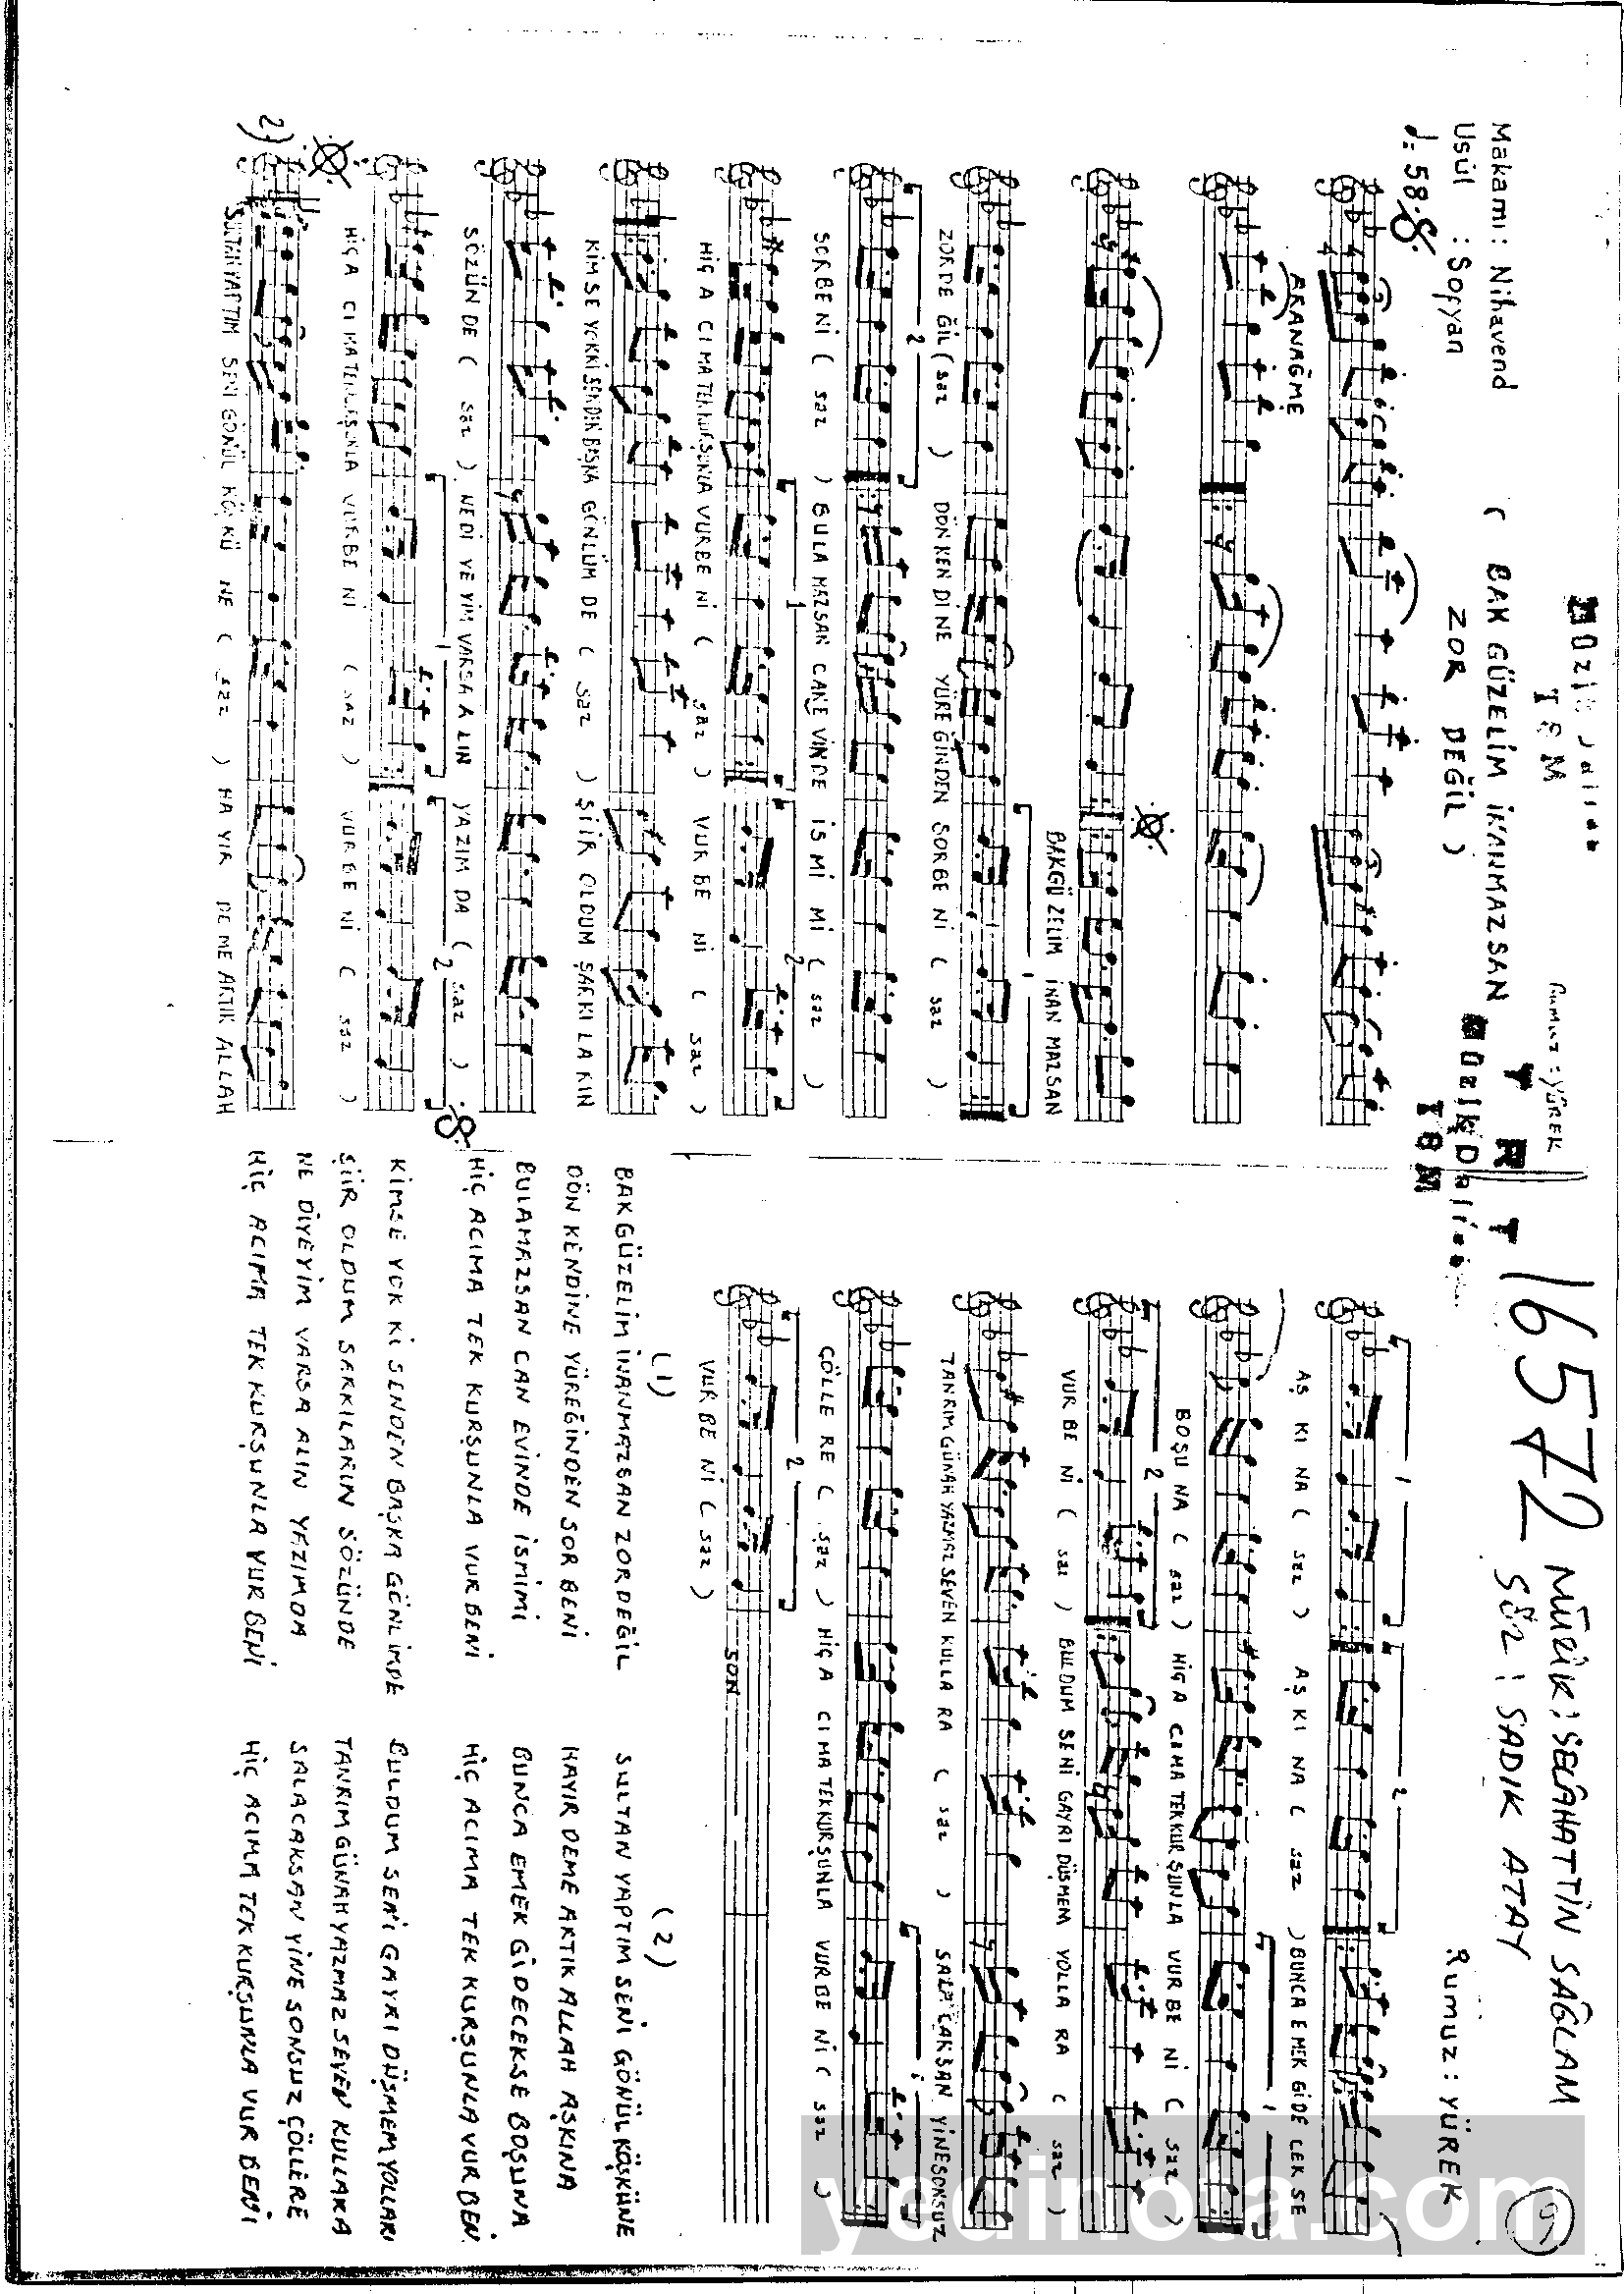 Makamı: Nihavend
Usül : Sofyan
♩: 58
( BAK GÜZELİM İNANMAZSAN
ZOR DEĞİL )
Rumuz: YÜREK
T R T
16572
MÜZİK: SELAHATTİN SAĞLAM
SÖZ: SADIK ATAY
Rumuz: YÜREK
9
ARANAĞME
BAKGÜ ZELİM İNAN MAZSAN
ZORDE ĞİL ( saz ) DÖN KEN Dİ NE YÜRE ĞİNDEN SORBE Nİ ( saz )
SORBE Nİ ( saz ) BULA MAZSAN CANE VİNDE İS Mİ Mİ ( saz )
HİÇ A CI MA TEKKURŞUNLA VURBE Nİ ( saz ) VUR BE Nİ ( saz )
KİMSE YOKKİ SENDEN BAŞKA GÖNLÜM DE ( saz ) ŞİİR OLDUM ŞARKI LA RIN
SÖZÜN DE ( saz ) NEDİ YE YİM VARSA A LIN YAZIM DA ( saz )
HİÇ A CI MA TEKKURŞUNLA VURBE Nİ ( saz ) VURBE Nİ ( saz )
2)
SULTAN YAPTIM SENİ GÖNÜL KÖŞKÜ NE ( saz ) HA YIR DE ME ARTIK ALLAH
AŞ KI NA ( saz ) AŞ KI NA ( saz ) BUNCA E MEK GİDE CEK SE
BOŞU NA ( saz ) HİÇ A CI MA TEKKURŞUNLA VUR BE Nİ ( saz )
VUR BE Nİ ( saz ) BULDUM SENİ GAYRI DÜŞMEM YOLLA RA ( saz )
TANRIM GÜNAH YAZMAZ SEVEN KULLA RA ( saz ) SALA CAKSAN YİNE SONSUZ
ÇÖLLE RE ( saz ) HİÇ A CI MA TEKKURŞUNLA VURBE Nİ ( saz )
VUR BE Nİ ( saz )
SON
(1)
BAK GÜZELİM İNANMAZSAN ZOR DEĞİL
DÖN KENDİNE YÜREĞİNDEN SOR BENİ
BULAMAZSAN CAN EVİNDE İSMİMİ
HİÇ ACIMA TEK KURŞUNLA VUR BENİ
KİMSE YOK Kİ SENDEN BAŞKA GÖNLÜMDE
ŞİİR OLDUM ŞARKILARIN SÖZÜNDE
NE DİYEYİM VARSA ALIN YAZIMDA
HİÇ ACIMA TEK KURŞUNLA VUR BENİ
(2)
SULTAN YAPTIM SENİ GÖNÜL KÖŞKÜNE
HAYIR DEME ARTIK ALLAH AŞKINA
BUNCA EMEK GİDECEKSE BOŞUNA
HİÇ ACIMA TEK KURŞUNLA VUR BENİ
BULDUM SENİ GAYRI DÜŞMEM YOLLARA
TANRIM GÜNAH YAZMAZ SEVEN KULLARA
SALACAKSAN YİNE SONSUZ ÇÖLLERE
HİÇ ACIMA TEK KURŞUNLA VUR BENİ
yedinota.com